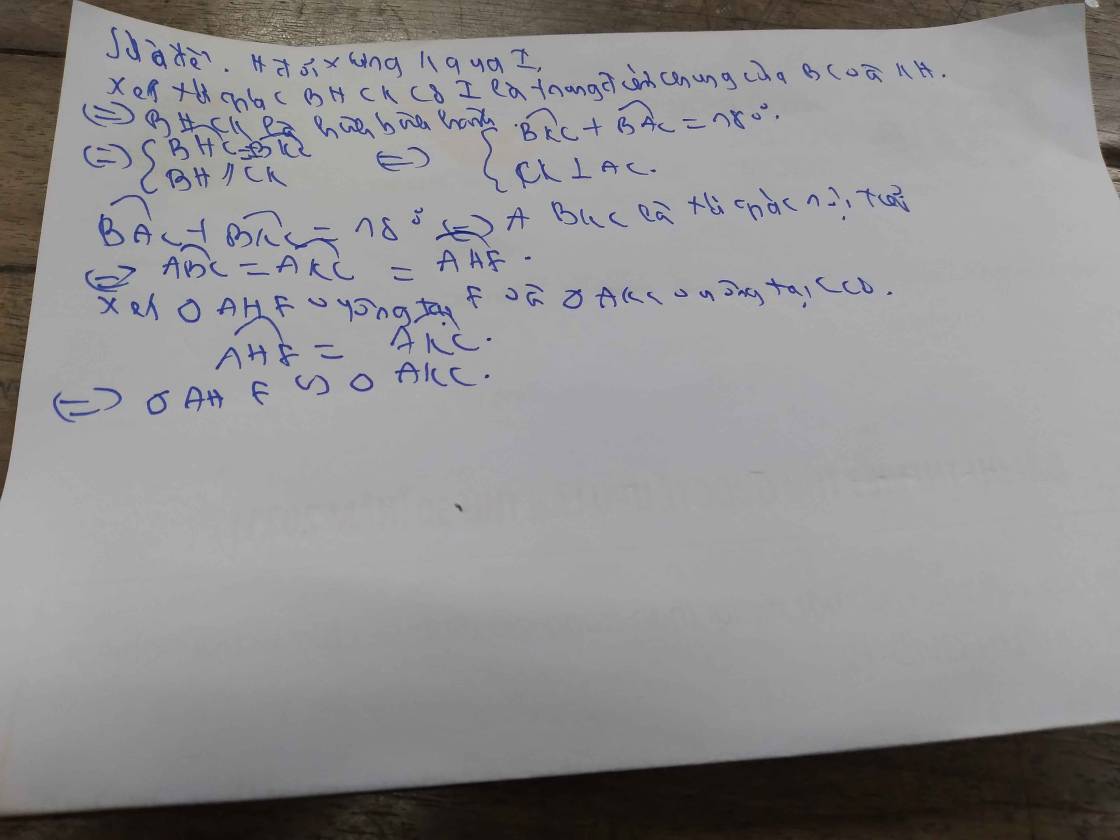 Sửa đề. H đối xứng K qua I.
Xét tứ giác BHCK có I là trung điểm chung của BC và KH.
(=) BHCK là hình bình hành. BKC + BAC = 180°.
(=) { BHC = BKC (=) {
BH // CK CK ⊥ AC.
BAC + BKC = 180° (=) ABKC là tứ giác nội tiếp
(=) ABC = AKC = AHF.
Xét △ AHF vuông tại F và △ AKC vuông tại C có.
AHF = AKC.
(=) △ AHF ∽ △ AKC.